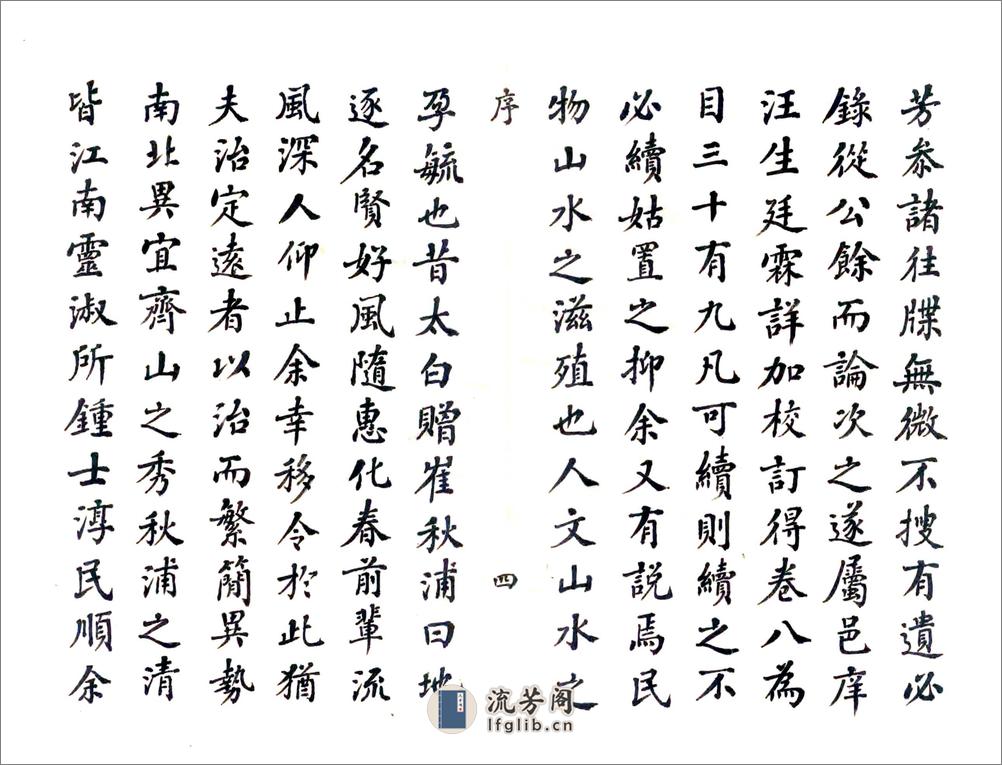 芳叅諸往牒無微不搜有遺必
錄從公餘而論次之遂屬邑庠
汪生廷霖詳加校訂得卷八為
目三十有九凡可續則續之不
必續姑置之抑余又有説焉民
物山水之滋殖也人文山水之
序 四
孕毓也昔太白贈崔秋浦曰地
逐名賢好風隨惠化春前輩流
風深人仰止余幸移令於此猶
夫治定遠者以治而繁簡異勢
南北異宜齊山之秀秋浦之清
皆江南靈淑所鍾士淳民順余
流芳阁
lfglib.cn